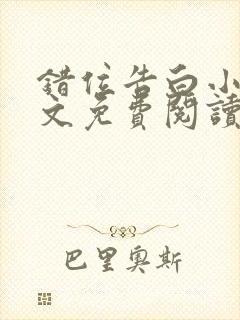 錯位告白小
文免費閱讀
巴里奧斯